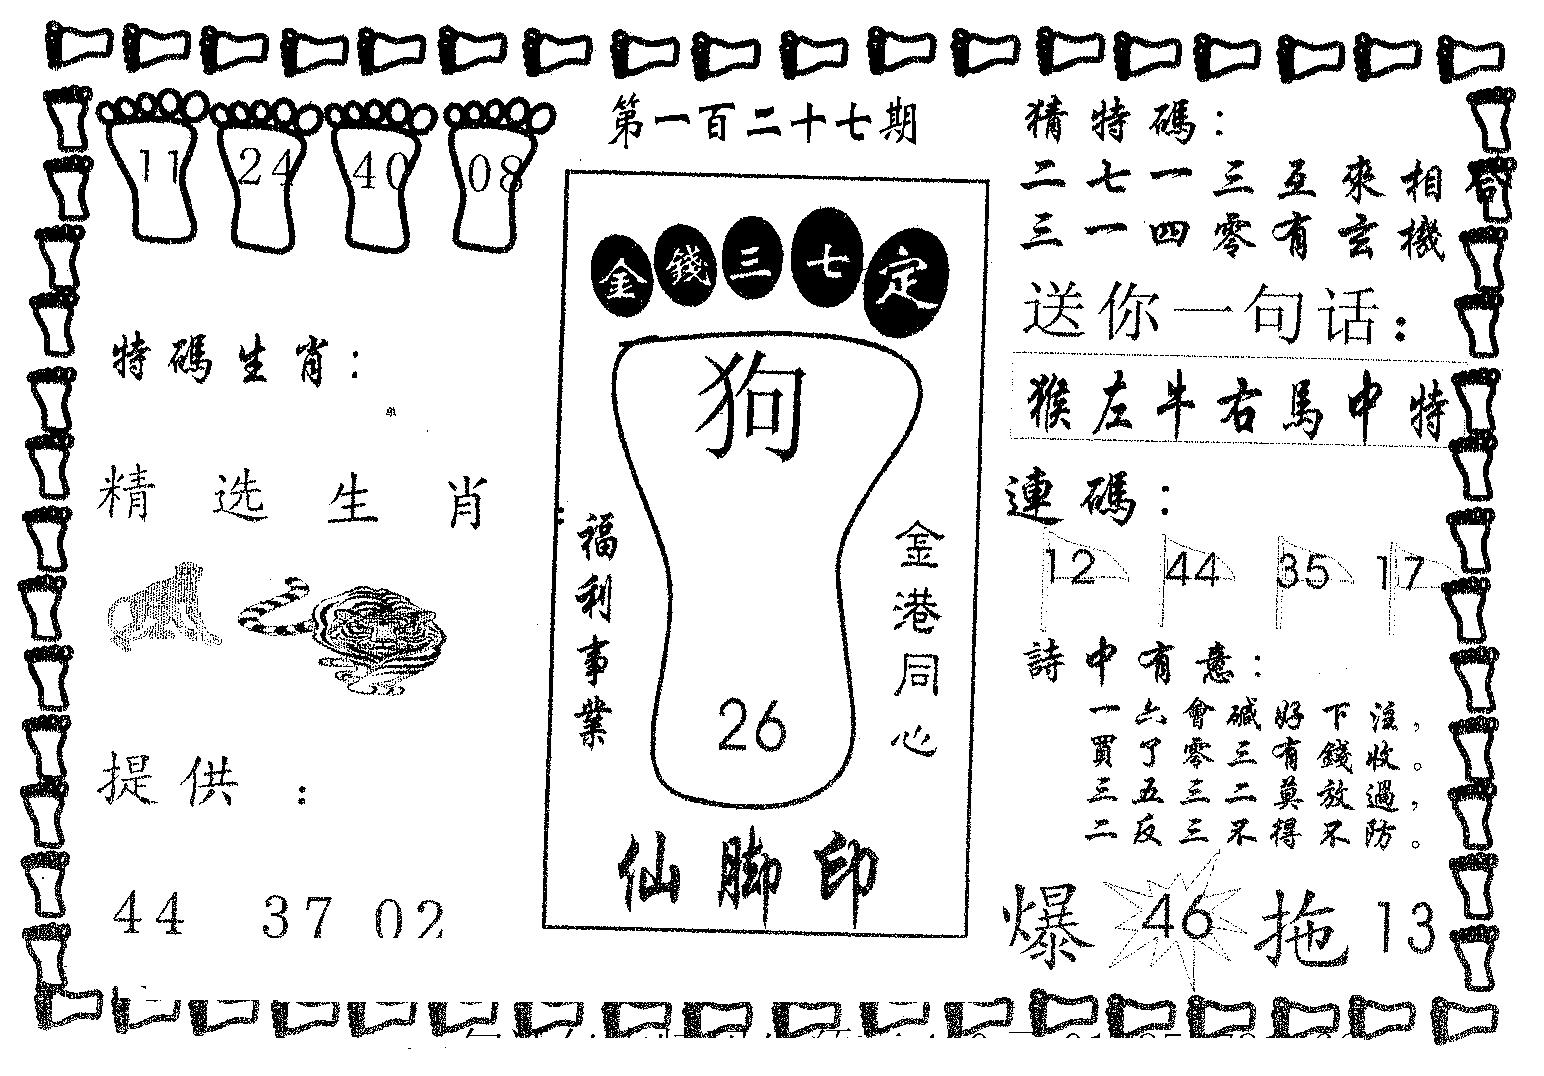 第一百二十七期
11 24 40 08
特碼生肖：
单
精选生肖：
提供：
44 37 02
金錢三七定
狗
26
福利事業
金港同心
仙脚印
猜特碼：
二七一三互來相
三一四零有玄機
送你一句话：
猴左牛右馬中特
連碼：
12 44 35 17
詩中有意：
一六會碱好下注，
買了零三有錢收。
三五三二莫放過，
二反三不得不防。
爆 46 拖 13